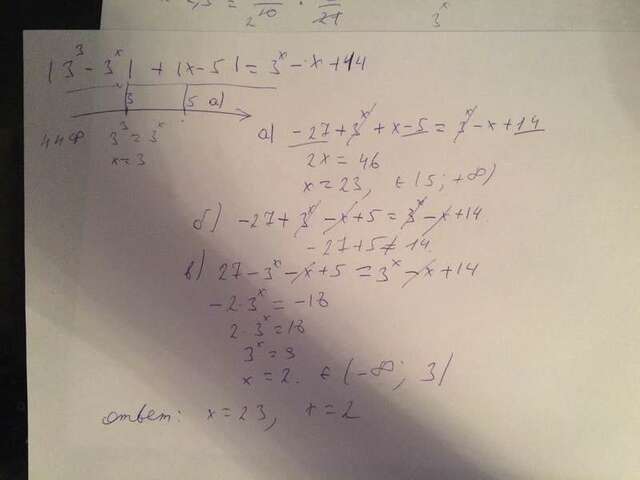 |3³ - 3ˣ| + |x - 5| = 3ˣ - x + 14
3 5 а)
3³ = 3ˣ
x = 3
а) -27 + 3ˣ + x - 5 = 3ˣ - x + 14
2x = 46
x = 23, ∈ (5; +∞)
б) -27 + 3ˣ - x + 5 = 3ˣ - x + 14
-27 + 5 ≠ 14
в) 27 - 3ˣ - x + 5 = 3ˣ - x + 14
-2·3ˣ = -18
2·3ˣ = 18
3ˣ = 9
x = 2. ∈ (-∞; 3)
ответ: x = 23, x = 2